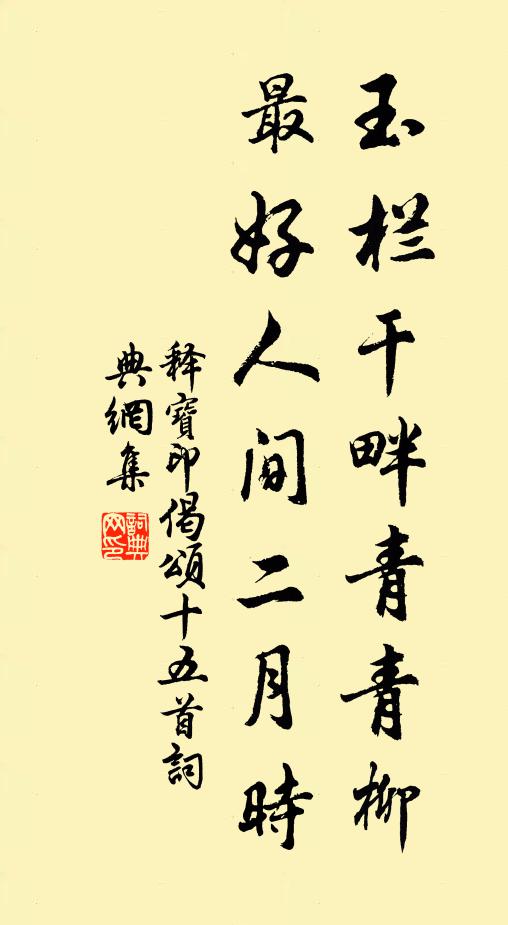 玉栏干畔青青柳
最好人间二月時
释寶印偈頌十五首詞
典網集
詞典网印